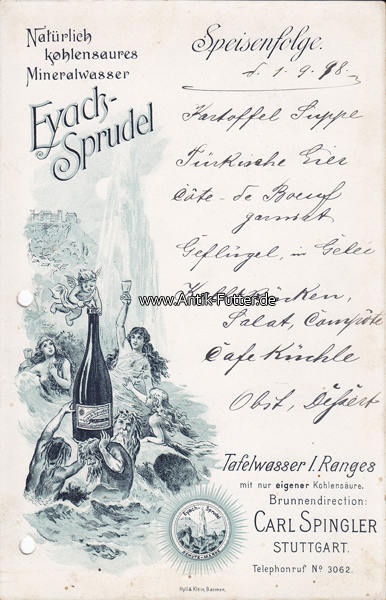 Natürlich
kohlensaures
Mineralwasser
Eyach-
Sprudel
Speisenfolge.
d. 1. 9. 98.
Kartoffel Suppe
Türkische Eier
Côte de Boeuf
garnirt
Geflügel, in Gelée
www.Antik-Futter.de
Salat, Compote
Cafe Küchle
Obst, Dessert
Tafelwasser I. Ranges
mit nur eigener Kohlensäure.
Brunnendirection:
CARL SPINGLER
STUTTGART.
Telephonruf No 3062.
Eyach-Sprudel
SCHUTZ-MARKE
Hyll & Klein, Barmen.